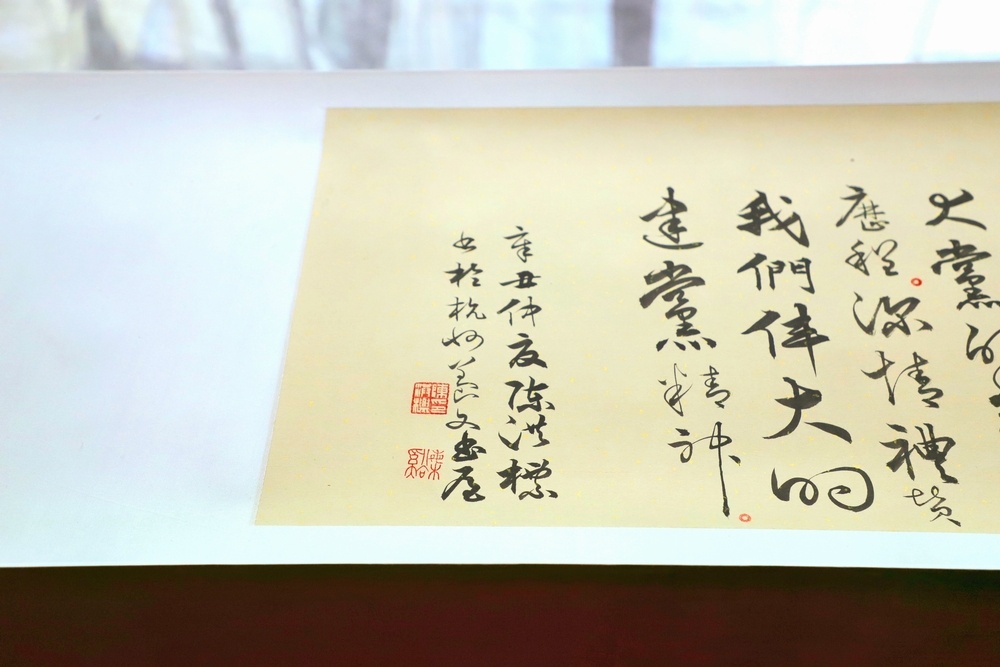 大黨的
歷程深情禮讚
我們偉大的
建黨精神
辛丑仲夏陳洪標
書於杭州善文書屋